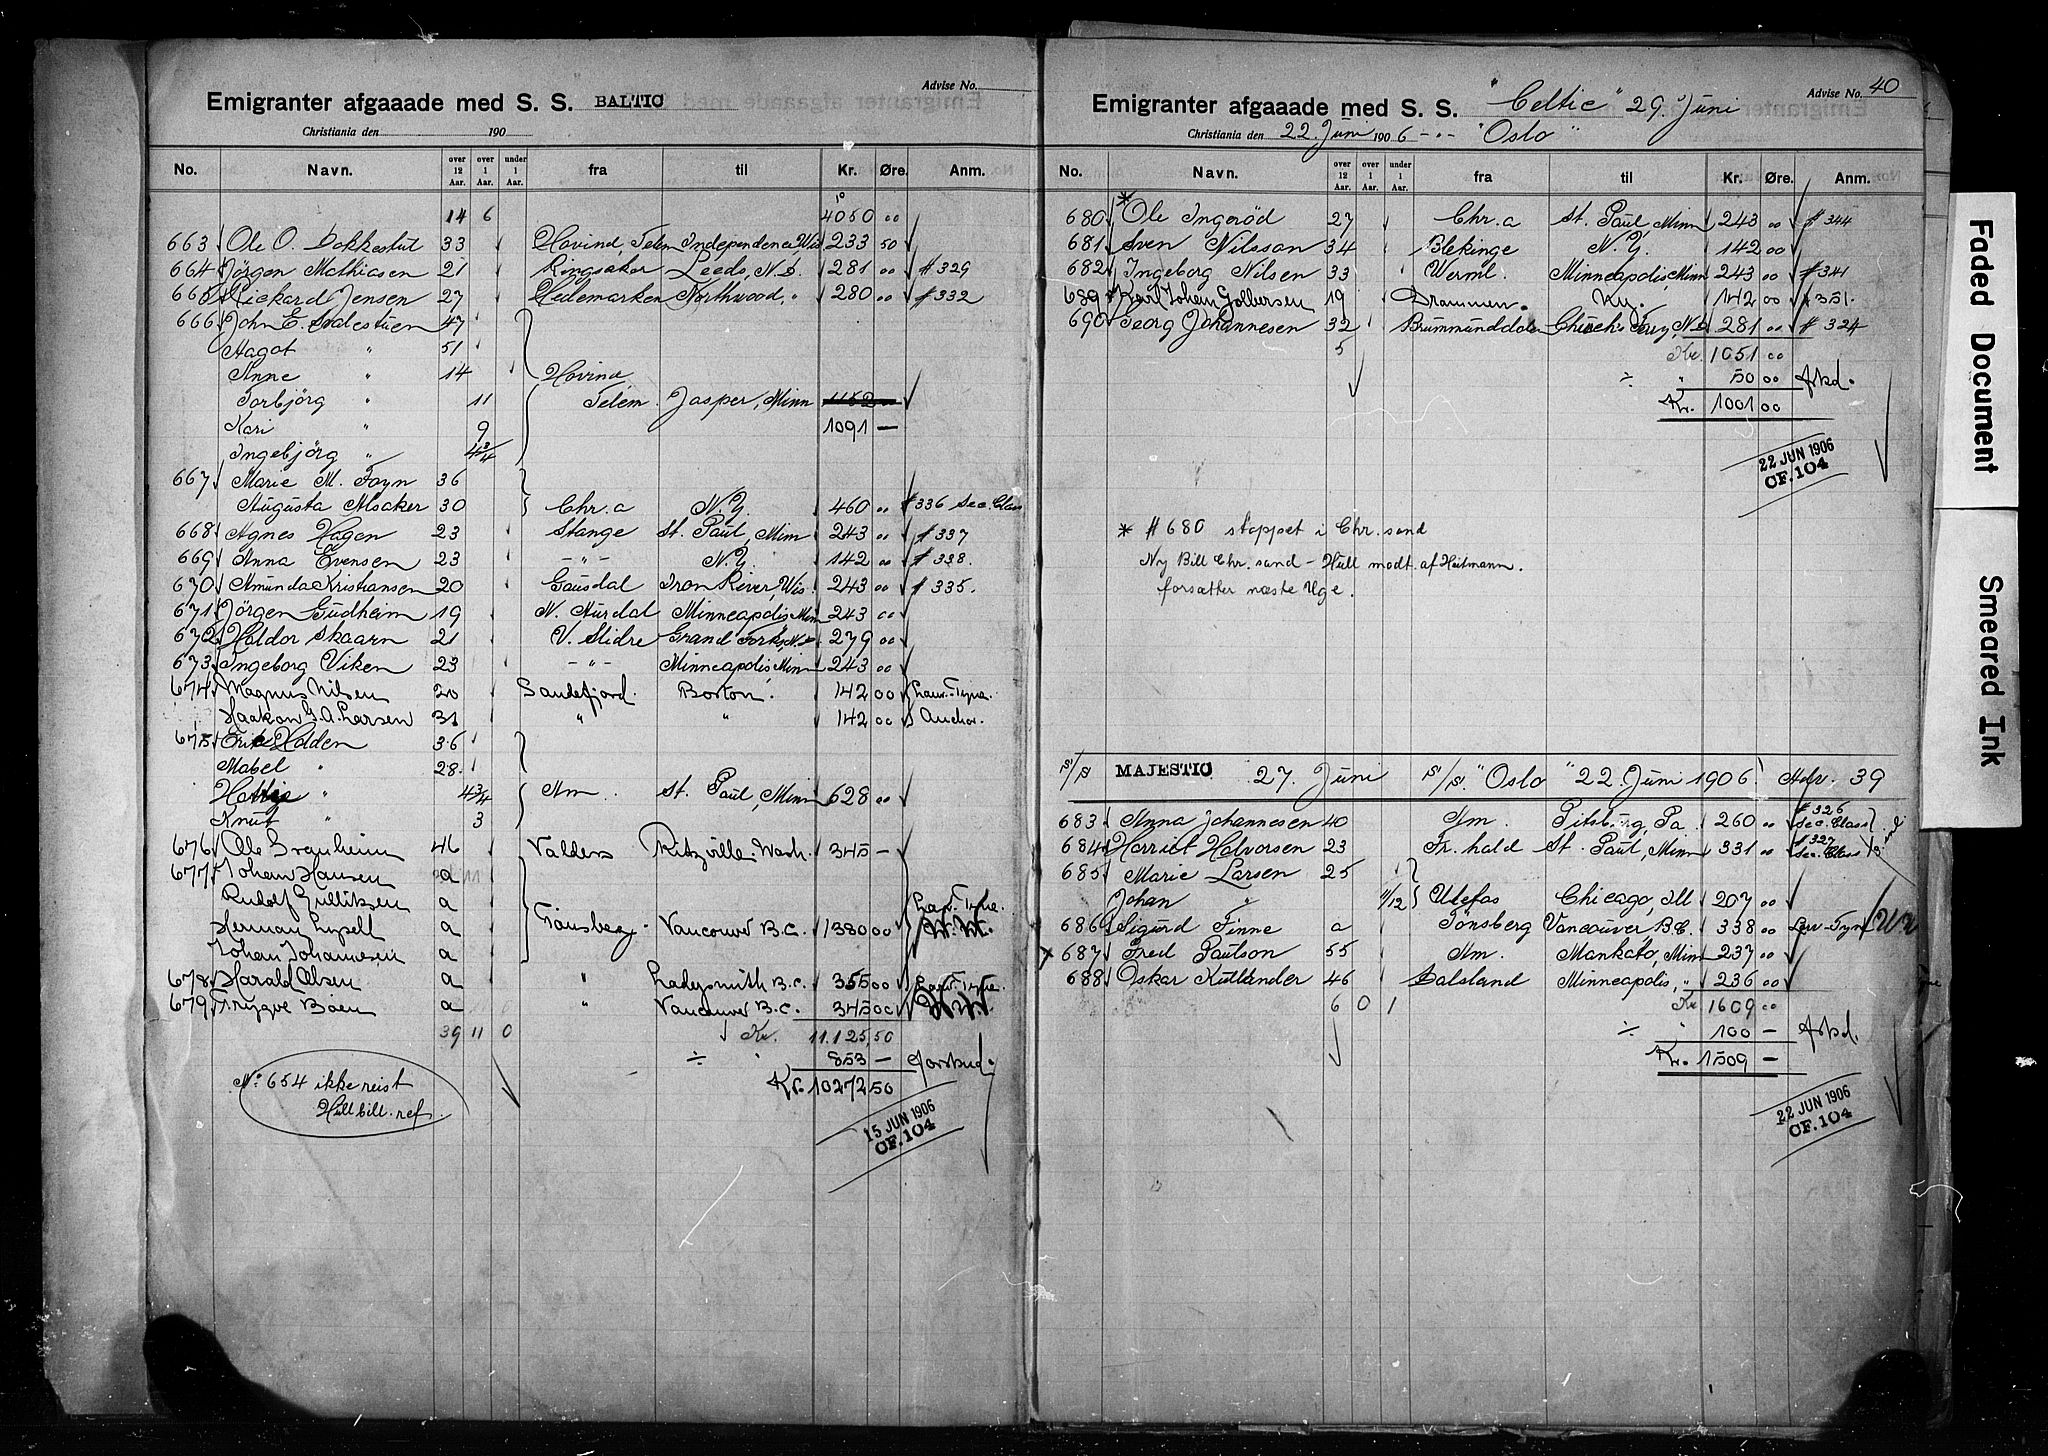 Advise No.
Emigranter afgaaade med S. S. BALTIC
Christiania den 190
No. Navn. over 12 Aar. over 1 Aar. under 1 Aar. fra til Kr. Øre. Anm.
14 6 4050 00
663 Ole O. Bakkestul 33 Hovind, Telem Independence, Wis 233 50
664 Jörgen Mathiasen 21 Ringsaker Leeds, N.D. 281 00 # 329
665 Rickard Jensen 27 Hedemarken Northwood, " 280 00 # 332
666 John E. 47
Aagot " 51
Anne " 14 Hovind
Torbjörg " 11 Telem. Jasper, Minn 1152
Kari " 9 1091 —
Ingebjörg " 4 3/4
667 Marie M. Foyn 36
Augusta Alsaker 30 Chr.a N.Y. 460 " # 336 Sec. Class
668 Agnes Hagen 23 Stange St. Paul, Minn 243 00 # 337
669 Anna Evensen 23 -"- N.Y. 142 00 # 338.
670 Amunda Kristiansen 20 Gausdal Iron River, Wis. 243 00 # 335.
671 Jörgen Gudheim 19 N. Aurdal Minneapolis Minn 243 00
672 Haldor Skaarn 21 V. Slidre Grand Forks, N.D. 279 00
673 Ingeborg Viken 23 -"- Minneapolis Minn 243 00
674 Magnus Nilsen 20 Sandefjord. Boston. 142 00 Laur-Tyne.
Haakon G. A. Larsen 31 " " 142 00 Anchor.
675 Eric Holden 36
Mabel " 28
" 4 3/4 Am. St. Paul, Minn 628 00
Knut " 3
676 Ole Granheim 46 Valders Ritzville Wash. 345 —
677 Johan Hansen a
Rudolf Gulliksen a Laur-Tyne.
Herman Lysell a Tönsberg. Vancouver B.C. 1380 00
Johan Johannesen a
678 Harald Olsen a " Ladysmith B.C. 355 00 Laur-Tyne
679 Trygve Boen a " Vancouver B.C. 345 00
39 11 0 Kr. 11.125,50
÷ " 853 — Forskud.
Kr. 10272 50
No 654 ikke reist
Hull bill. ref.
15 JUN 1906
CF. 104
Advise No. 40
Emigranter afgaaade med S. S. "Celtic" 29. Juni
Christiania den 22. Juni 1906 -"- "Oslo"
No. Navn. over 12 Aar. over 1 Aar. under 1 Aar. fra til Kr. Øre. Anm.
680 * Ole Ingeröd 27 Chr.a St. Paul, Minn 243 00 # 344
681 Sven Nilsson 34 Blekinge N.Y. 142 00
682 Ingeborg Nilsen 33 Verml. Minneapolis, Minn 243 00 # 341
689 Karl Johan Golbersen 19 Drammen. Ny. 142 00 # 351.
690 Georg Johannesen 32 Brummunddalen Church's Ferry, N.D. 281 00 # 324
5 Kr. 1051 00
÷ " 50 00 Forskd.
Kr. 1001 00
22 JUN 1906
CF. 104
* # 680 stoppet i Chr.sand
Ny Bill Chr.sand - Hull modt. af Heitmann.
forsætter næste Uge.
S/S MAJESTIC 27. Juni S/S. "Oslo" 22. Juni 1906 Adv. 39
683 Anna Johannesen 40 Am. Pitsburg, Pa. 260 00 # 326 Sec. Class
684 Harriet Halvorsen 23 Fr. hald St. Paul, Minn 331 00 # 327 Sec. Class
685 Marie Larsen 25
Johan " 11/12 Ulefos Chicago, Ill 207 00
686 Sigurd Finne a Tönsberg Vancouver B.C. 338 00 Lar-Tyne
x 687 Fred Paulson 55 Am. Mankato, Minn 237 00
688 Oskar Kullander 46 Dalsland Minneapolis, " 236 00
6 0 1 Kr. 1609 00
÷ " 100 — Forskd.
Kr. 1509 —
22 JUN 1906
CF. 104
Faded Document
Smeared Ink